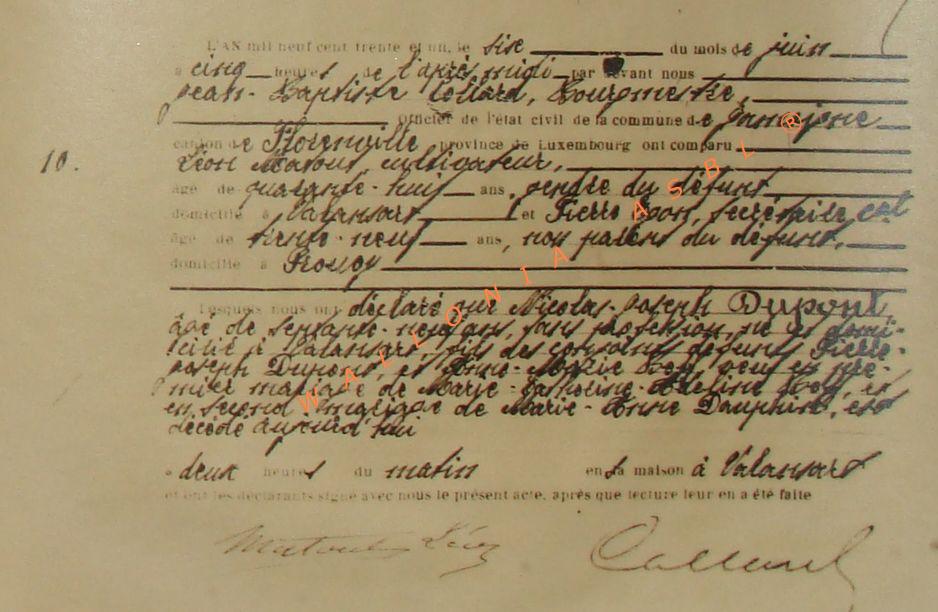 L'AN mil neuf cent trente et un, le six du mois de juin
à cinq heures de l'après-midi par devant nous
Jean-Baptiste Collard, Bourgmestre,
Officier de l'état civil de la commune de Jamoigne
canton de Florenville, province de Luxembourg ont comparu
10. Léon cultivateur,
âgé de quarante-huit ans, gendre du défunt
domicilié à Valansart et Pierre secrétaire cal
âgé de trente-neuf ans, non parent du défunt,
domicilié à Prouvy
Lesquels nous ont déclaré que Nicolas-Joseph Dupont,
âgé de septante-neuf ans, sans profession, né et domi-
cilié à Valansart, fils des conjoints défunts Pierre-
Joseph Dupont, et Anne-Marie veuf en pre-
mier mariage de Marie-Catherine-Adeline et
en second mariage de Marie-Anne Dauphin, est
décédé aujourd'hui
à deux heures du matin en sa maison à Valansart
et ont les déclarants signé avec nous le présent acte, après que lecture leur en a été faite
Léon Collard
WALLONIA ASBL ®